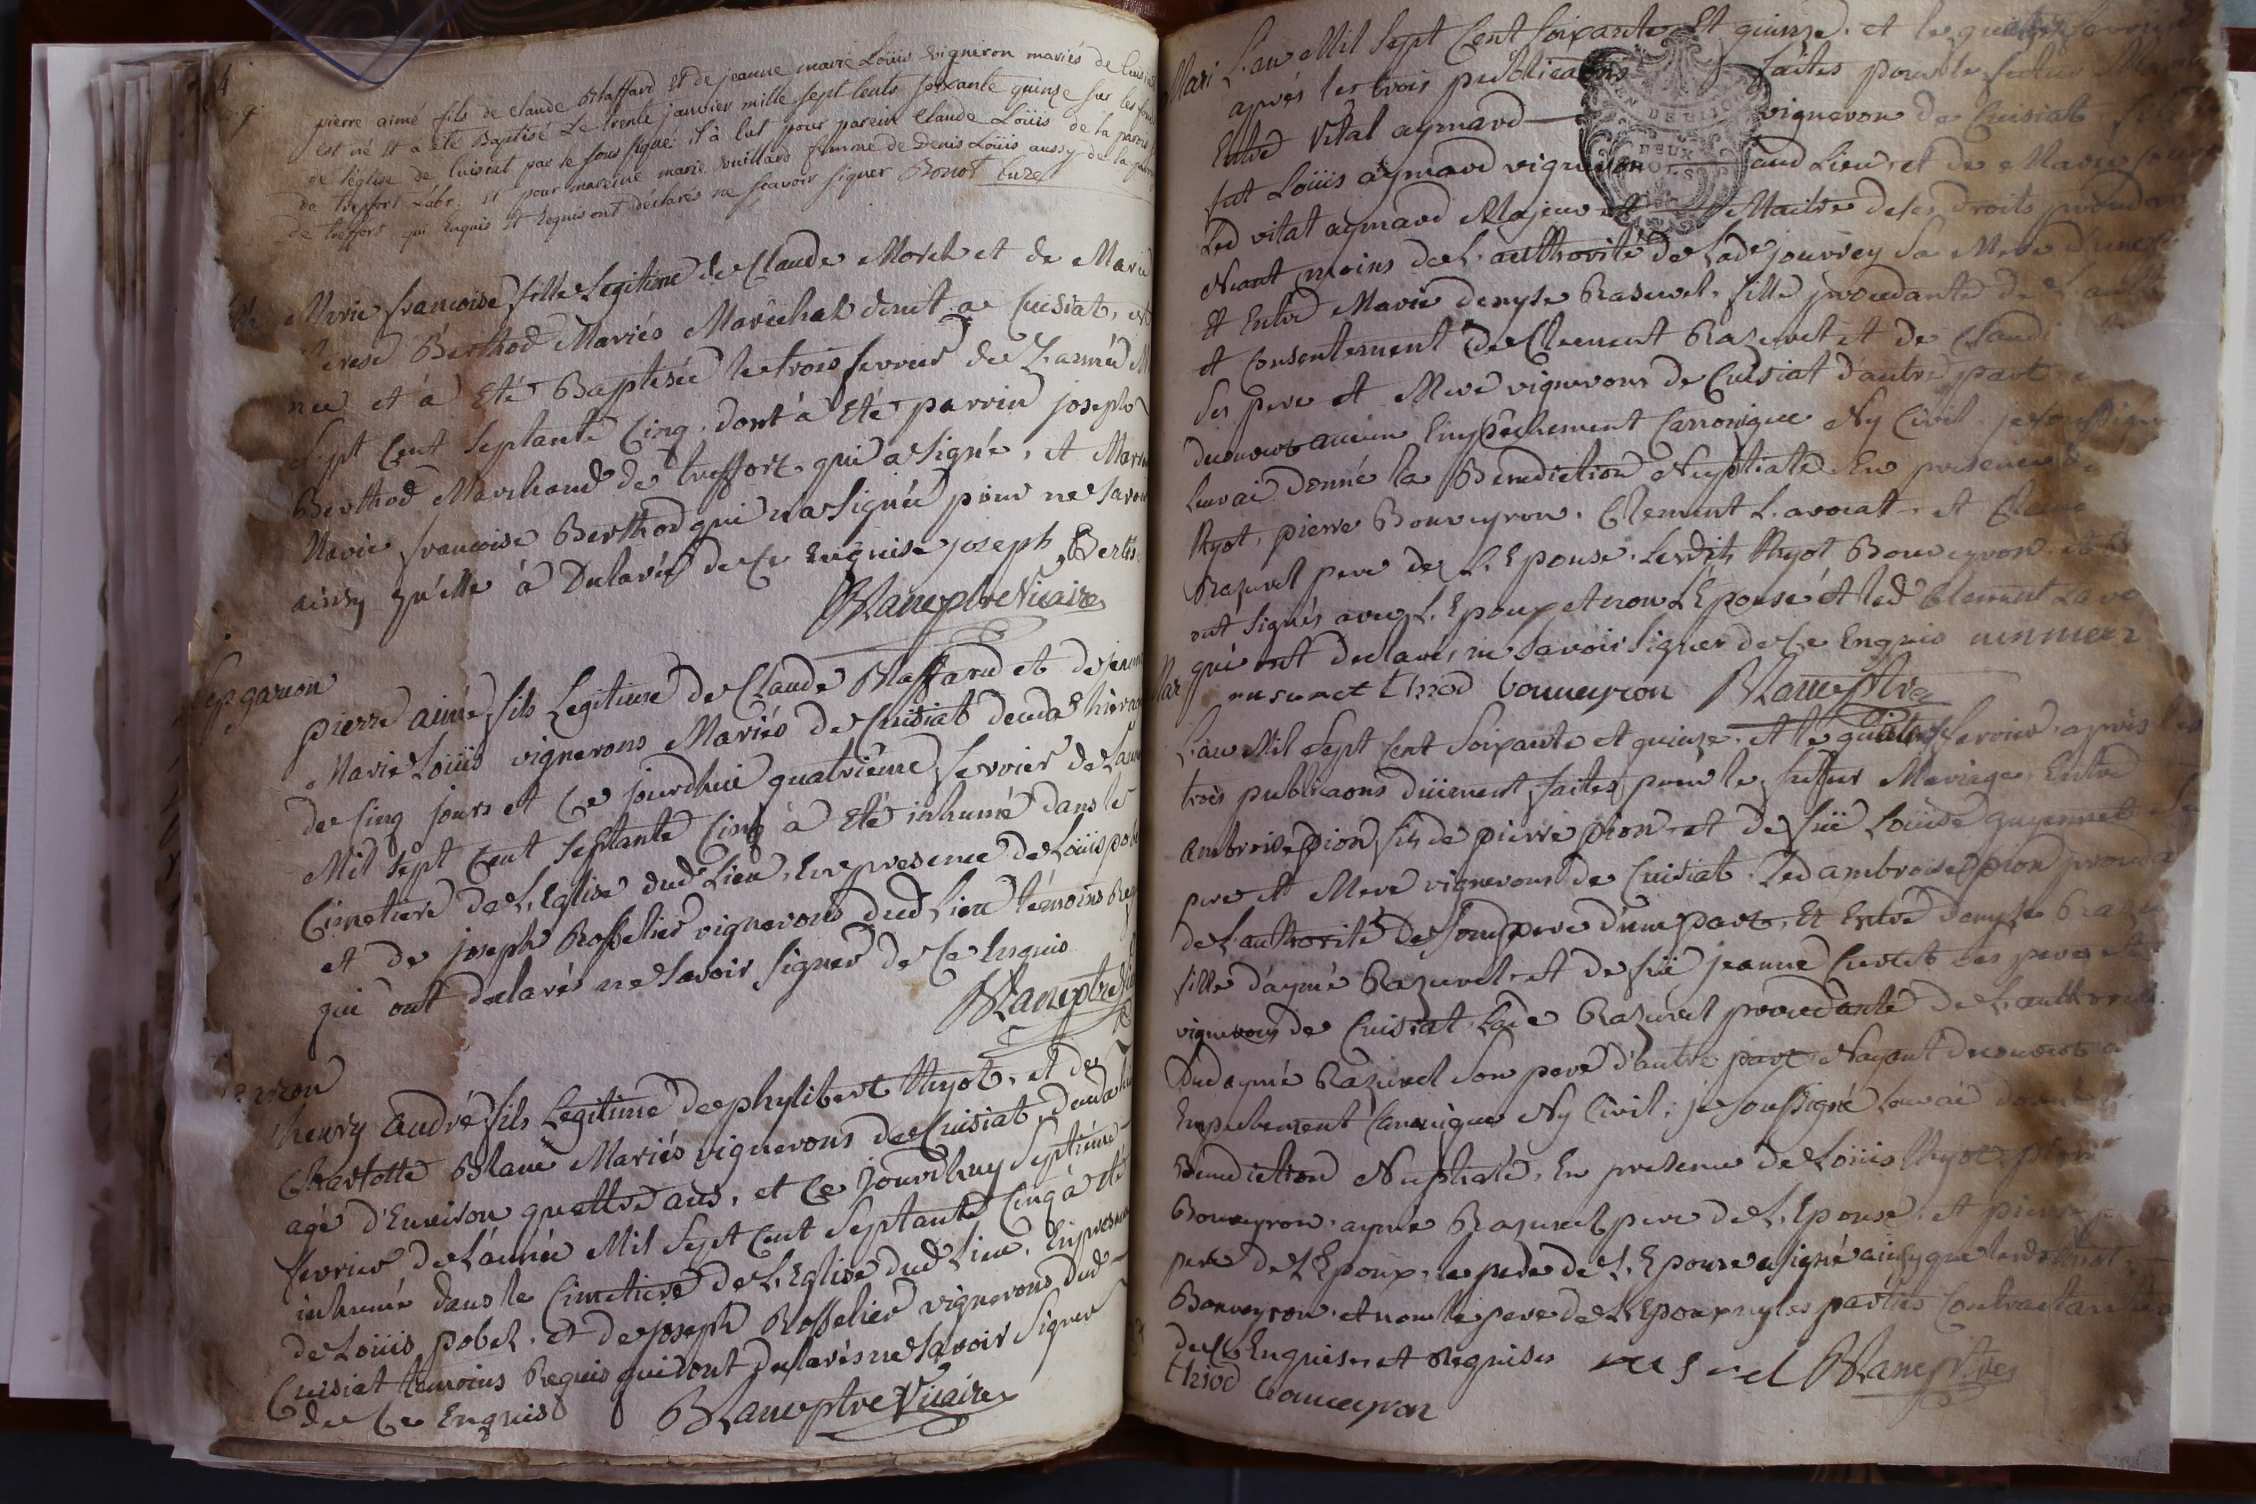 pierre aimé fils de claude Blaffard et de jeanne marie Loüis vigneron mariés de Cuisiat
est né et a été Baptisé Le trente janvier mille sept cents soixante quinze sur les fons
de l'église de Cuisiat par le sous signé: il à Eut pour parein Claude Loüis de la paroisse
de treffort Labr. et pour mareine marie vuillard femme de Denis Loüis aussy de la paroisse
de treffort qui Enquis et Requis ont déclarés ne sçavoir signer Bonot Curé
Marie francoise fille Legitime de Claude Morel et de Marie
terese Berthod Mariés Maréchal demt. a Cuisiat, est
née et à Eté Baptisée le trois fevrier de L'année Mil
sept Cent septante Cinq, dont à Eté parrin joseph
Berthod Marchand de treffort, qui a signé, et Marrine
Marie francoise Berthod qui n'a signée pour ne savoir
ainsy qu'elle à Delarée de Ce Enquise joseph Berth.
Blanc ptre Vicaire
garcon
pierre aimé fils Legitime de Claude Blaffard et de jeanne
Marie Loüis vignerons Mariés de Cuisiat decedé hier agé
de Cinq jours et Ce jourdhui quatrième fevrier de Lannée
Mil sept Cent septante Cinq à Eté inhumé dans le
Cimetiere de L'Eglise dud. Lieu, En presence de Loüis pobel
et de joseph Rosselier vignerons dud Lieu témoins Requis
qui ont declarés ne savoir signer de Ce Enquis
Blanc ptre
garcon
henry andré fils Legitime de phylibert Thyot, et de
Charlotte Blanc Mariés vignerons de Cuisiat, decedé hier
agé d'Environ quattre ans, et Ce jourdhuy septième
fevrier de L'année Mil Sept Cent Septante Cinq à Eté
inhumé dans le Cimetiere de L'Eglise dud Lieu, En presence
de Loüis pobel, et de joseph Rosselier vignerons dud
Cuisiat temoins Requis qui ont delarés ne savoir signer
de Ce Enquis Blanc ptre Vicaire
Mari L'an Mil Sept Cent Soixante Et quinze, et le quatre fevrier
après les trois publications faites pour le futur Mariage
Entre Vital aymard vigneron de Cuisiat fils
fut Loüis aymard vigneron aud Lieu, et de Marie jouvrey
Led vital aymard Majeur et Maitre de ses droits procedant
Neant moins de L'authorité de Lade jouvrey Sa Mere d'une part
Et Entre Marie denyse Razurel, fille procedante de L'auth
et Consentement de Clement Razurel et de Claud
ses pere et Mere vignerons de Cuisiat d'autre part
decouvert aucun Empêchement Cannonique Ny Civil je soussigné
leur ai donné la Benediction Nuptiale En presence de
Thyot, pierre Bouveyron, Clement L'avocat, et Clement
Razurel pere de L'Epouse. Lesdits Thyot Bouveyron et
ont signés avec L'Epoux et non L'Epouse et led Clement Lavo
qui ont declarés ne savoir signer de Ce Enquis
Thiod bouveyron Blanc ptre
Mar L'an Mil Sept Cent Soixante et quinze, et le quatre fevrier après les
trois publicaons duëment faites pour le futur Mariage Entre
ambroise pion fils de pierre pion et de füe Loüise guyennet
pere et Mere vignerons de Cuisiat. Led ambroise pion procedant
de L'authorité de son pere d'une part, Et Entre denyse Razurel
fille d'aymé Razurel et de füe jeanne Curtet ses pere et
vignerons de Cuisiat, Lade Razurel procedante de L'authorité
Dud aymé Razurel son pere d'autre part Nayant decouvert a
Empechement Canonique Ny Civil, je soussigné leur ai donné
Benediction Nuptiale, En presence de Loüis Thyot, pierre
Bouveyron, aymé Razurel pere de L'Epouse, et pierre
pere de L'Epoux, le pere de L'Epouse a signé ainsy que lesds Thyot
Bouveyron, et non le pere de L'Epoux ny les parties Contractantes
de Ce Enquises et Requises Blanc ptre
Thiod bouveyron
DEUX